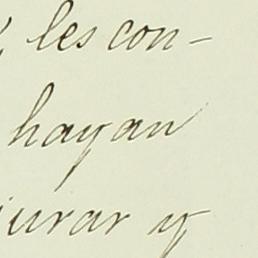 les con-
hayan
urar y